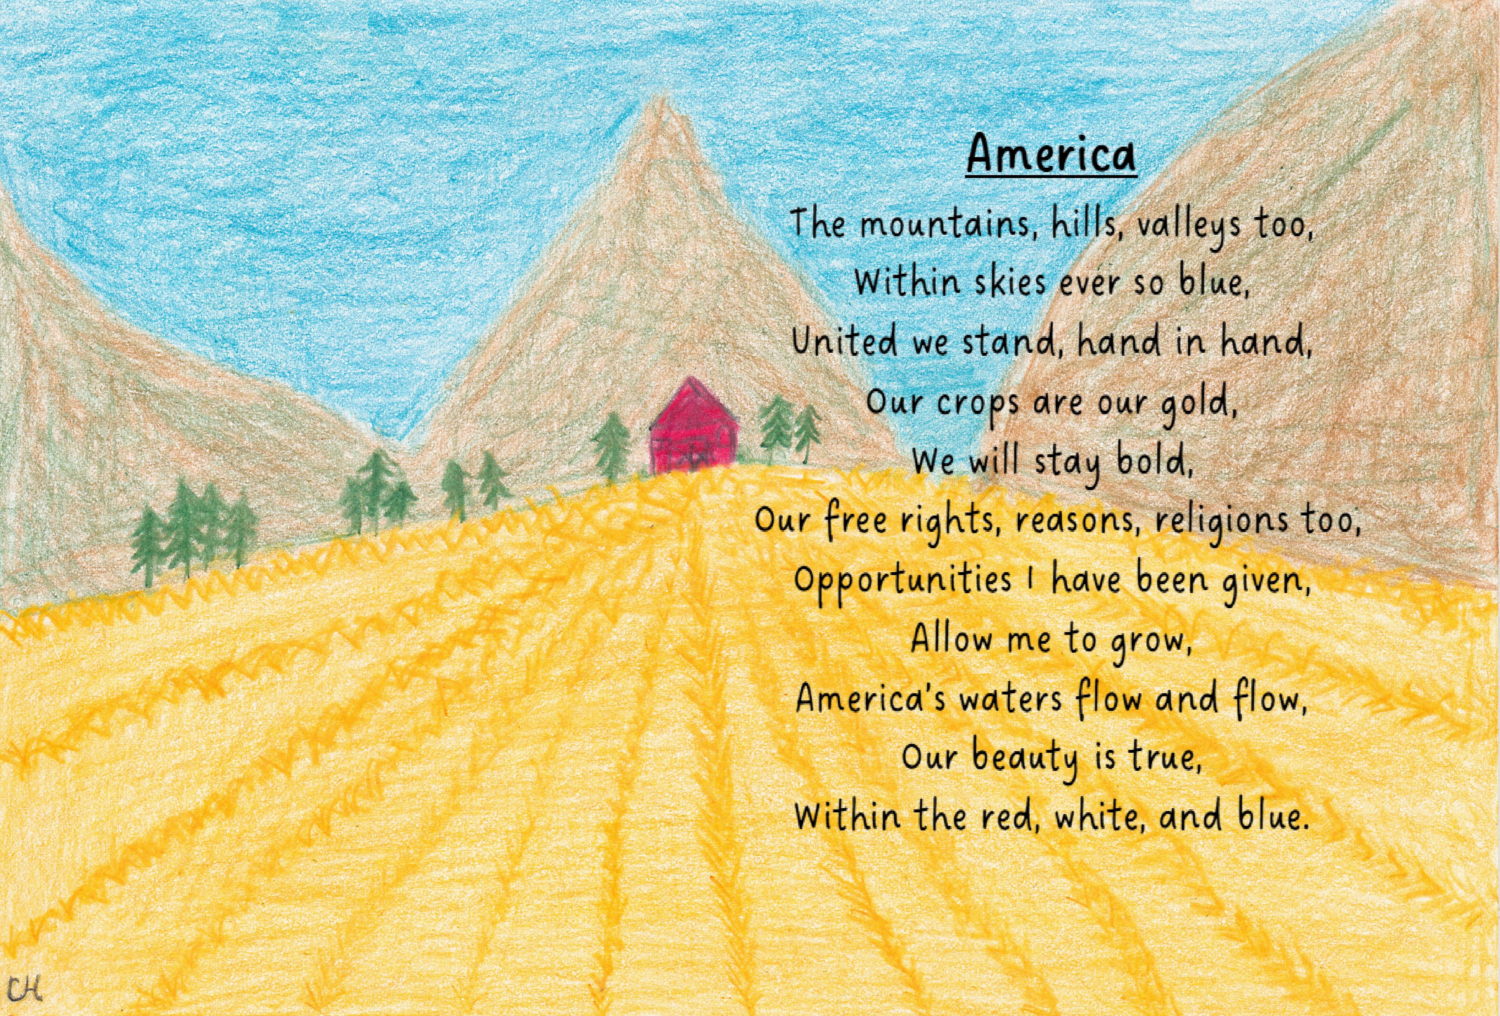 America
The mountains, hills, valleys too,
Within skies ever so blue,
United we stand, hand in hand,
Our crops are our gold,
We will stay bold,
Our free rights, reasons, religions too,
Opportunities I have been given,
Allow me to grow,
America's waters flow and flow,
Our beauty is true,
Within the red, white, and blue.
CH